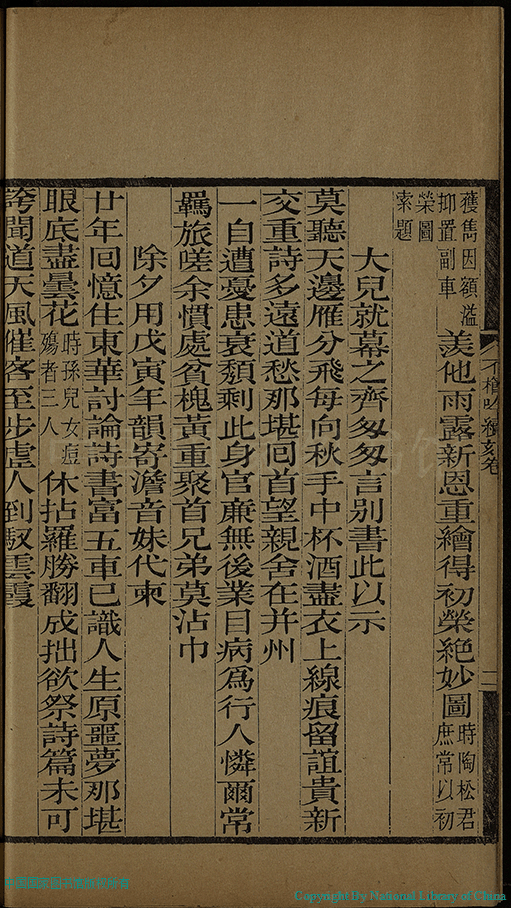 獲雋因額溢抑置副車羨他雨露新恩重繪得初榮絕妙圖時陶松君庶常以初
榮圖索題
大兒就幕之齊匆匆言別書此以示
莫聽天邊雁分飛每向秋手中杯酒盡衣上線痕留誼貴新
交重詩多遠道愁那堪回首望親舍在并州
一自遭憂患衰頹剩此身官廉無後業日病爲行人憐爾常
羈旅嗟余慣處貧槐黃重聚首兄弟莫沾巾
除夕用戊寅年韻寄澹音妹代柬
廿年回憶住東華討論詩書富五車已識人生原噩夢那堪
眼底盡曇花時孫兒女痘殤者三人休拈羅勝翻成拙欲祭詩篇未可
誇聞道天風催客至步虛人到馭雲霞
Copyright By National Library of China